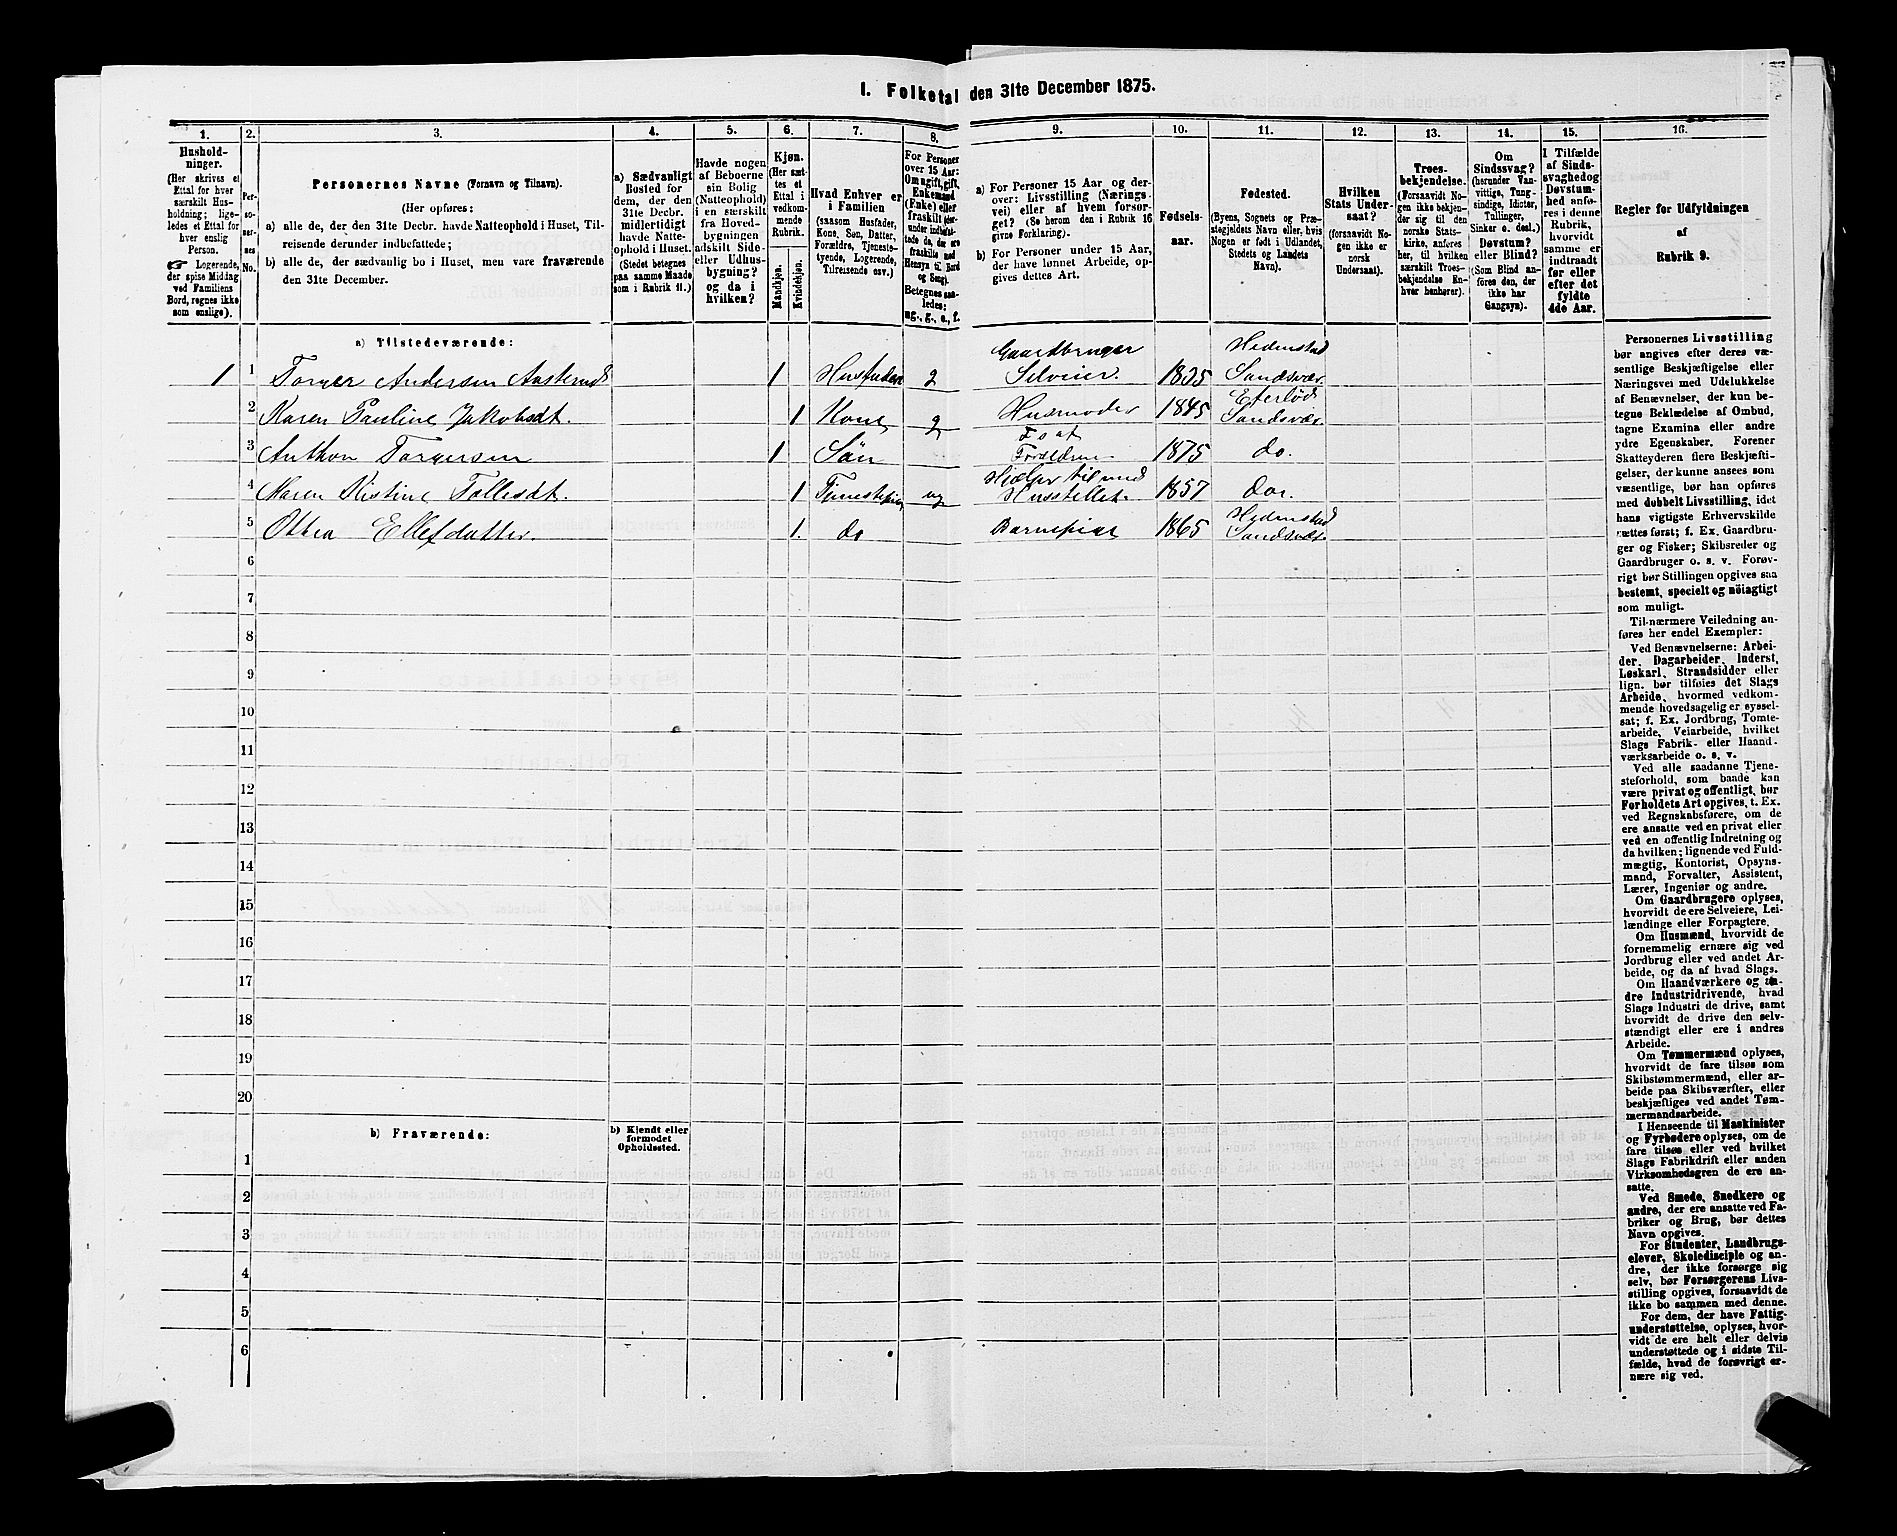 I. Folketal den 31te December 1875.
1.
2.
3.
4.
5.
6.
7.
8.
9.
10.
11.
12.
13.
14.
15.
16.
Hushold-
ninger.
(Her skrives et
Ettal for hver
særskilt Hus-
holdning; lige-
ledes et Ettal for
hver enslig
Person.
Logerende,
der spise Middag
ved Familiens
Bord, regnes ikke
som enslige).
Per-
so-
ner-
nes
No.
Personernes Navne (Fornavn og Tilnavn).
(Her opføres:
a) alle de, der den 31te Decbr. havde Natteophold i Huset, Til-
reisende derunder indbefattede;
b) alle de, der sædvanlig bo i Huset, men vare fraværende
den 31te December.
a) Sædvanligt
Bosted for
dem, der den
31te Decbr.
midlertidigt
havde Natte-
ophold i Huset.
(Stedet betegnes
paa samme Maade
som i Rubrik 11.)
Havde nogen
af Beboerne
sin Bolig
(Natteophold)
i en særskilt
fra Hoved-
bygningen
adskilt Side-
eller Udhus-
bygning?
og da i
hvilken?
Kjøn.
(Her sæt-
tes et
Ettal i
vedkom-
mende
Rubrik.
Mandkjøn.
Kvindekjøn.
Hvad Enhver er
i Familien
(saasom Husfader,
Kone, Søn, Datter,
Forældre, Tjeneste-
tyende, Logerende,
Tilreisende osv.)
For Personer
over 15 Aar:
Om ugift, gift,
Enkemand
(Enke) eller
fraskilt
Hensyn til Bord
og Seng).
Betegnes saa-
ledes:
ug., g., e., f.
a) For Personer 15 Aar og der-
over: Livsstilling (Nærings-
vei) eller af hvem forsør-
get? (Se herom den i Rubrik 16
givne Forklaring).
b) For Personer under 15 Aar,
der have lønnet Arbeide, op-
gives dettes Art.
Fødsels-
aar.
Fødested.
(Byens, Sognets og Præ-
stegjeldets Navn eller, hvis
Nogen er født i Udlandet,
Stedets og Landets
Navn).
Hvilken
Stats Under-
saat?
(forsaavidt No-
gen ikke er
norsk
Undersaat).
Troes-
bekjendelse.
(Forsaavidt No-
gen ikke bekjen-
der sig til den
norske Stats-
kirke, anføres
her, til hvilken
særskilt Troes-
bekjendelse En-
hver henhører).
Om
Sindssvag?
(herunder Van-
vittige, Tung-
sindige, Idioter,
Tullinger,
Sinker o. desl.)
Døvstum?
eller Blind?
(Som Blind an-
føres den, der
ikke har
Gangsyn).
I Tilfælde
af Sinds-
svaghed og
Døvstum-
hed anfø-
res i denne
Rubrik,
hvorvidt
samme er
indtraadt
før eller
efter det
fyldte
4de Aar.
Regler for Udfyldningen
af
Rubrik 9.
a) Tilstedeværende:
1 1 Torger Andersen Aasterud 1 Husfader g Gaardbruger Selveier. 1835 Hedenstad Sandsvær.
2 Karen Pauline Jakobsdt. 1 Kone g Husmoder 1845 Eftelød Sandsvær.
3 Anthon Torgersen 1 Søn Fo af Forældrene 1875 do.
4 Maren Kistine Tollefsdt. 1 ug Hjælper til med Husstellet. 1857 do.
5 Othea Ellefsdatter. 1. do Barnepige 1865 Hedenstad Sandsvær.
6
7
8
9
10
11
12
13
14
15
16
17
18
19
20
b) Fraværende:
b) Kjendt eller
formodet
Opholdssted.
1
2
3
4
5
6
Personernes Livsstilling
bør angives efter deres væ-
sentlige Beskjæftigelse eller
Næringsvei med Udelukkelse
af Benævnelser, der kun be-
tegne Beklædelse af Ombud,
tagne Examina eller andre
ydre Egenskaber. Forener
Skatteyderen flere Beskjæfti-
gelser, der kunne ansees som
væsentlige, bør han opføres
med dobbelt Livsstilling, idet
hans vigtigste Erhvervskilde
sættes først; f. Ex. Gaardbru-
ger og Fisker; Skibsreder og
Gaardbruger o. s. v. Forøv-
rigt bør Stillingen opgives saa
bestemt, specielt og nöiagtigt
som muligt.
Til nærmere Veiledning an-
føres her endel Exempler:
Ved Benævnelserne: Arbei-
der, Dagarbeider, Inderst,
Løskarl, Strandsidder eller
lign. bør tilføies det Slags
Arbeide, hvormed vedkom-
mende hovedsagelig er syssel-
sat; f. Ex. Jordbrug, Tomte-
arbeide, Veiarbeide, hvilket
Slags Fabrik- eller Haand-
værksarbeide o. s. v.
Ved alle saadanne Tjene-
steforhold, som baade kan
være privat og offentligt, bør
Forholdets Art opgives, t. Ex.
ved Regnskabsførere, om de
ere ansatte ved en privat eller
ved en offentlig Indretning og
da hvilken; lignende ved Fuld-
mægtig, Kontorist, Opsyns-
mand, Forvalter, Assistent,
Lærer, Ingeniør og andre.
Om Gaardbrugere oplyses,
hvorvidt de ere Selveiere, Lei-
lændinge eller Forpagtere.
Om Husmænd, hvorvidt de
fornemmelig ernære sig ved
Jordbrug eller ved andet Ar-
beide, og da af hvad Slags.
Om Haandværkere og an-
dre Industridrivende, hvad
Slags Industri de drive, samt
hvorvidt de drive den selv-
stændigt eller ere i andres
Arbeide.
Om Tømmermænd oplyses,
hvorvidt de fare tilsøs som
Skibstømmermænd, eller ar-
beide paa Skibsværfter, eller
beskjæftiges ved andet Tøm-
mermandsarbeide.
I Henseende til Maskinister
og Fyrbødere oplyses, om de
fare tilsøs eller ved hvilket
Slags Fabrikdrift eller anden
Virksomhedsgren de ere an-
satte.
Ved Smede, Snedkere og
andre, der ere ansatte ved Fa-
briker og Brug, bør dettes
Navn opgives.
For Studenter, Landbrugs-
elever, Skoledisciple og an-
dre, der ikke forsørge sig
selv, bør Forsørgerens Livs-
stilling opgives, forsaavidt de
ikke bo sammen med denne.
For dem, der have Fattig-
understøttelse, oplyses, hvor-
vidt de ere helt eller delvis
understøttede og i sidste Til-
fælde, hvad de forøvrigt er-
nære sig ved.